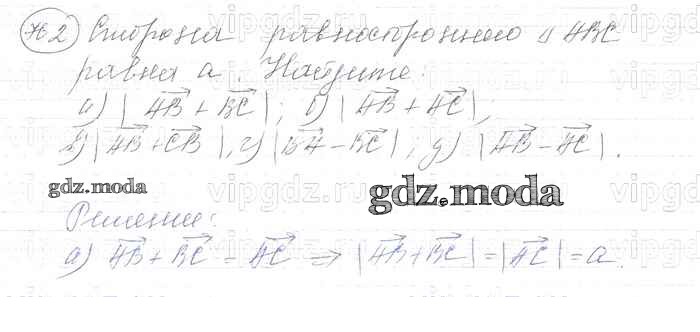 №2 Сторона равностороннего △ ABC
равна a. Найдите:
а) |AB + BC|; б) |AB + AC|;
в) |AB + CB|, г) |BA - BC|; д) |AB - AC|.
gdz.moda gdz.moda
Решение:
а) AB + BC = AC ⇒ |AB + BC| = |AC| = a.